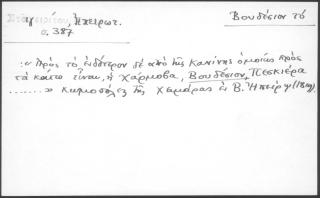 Βουδέσιον τό
Σταγειρίτου, Ἠπειρωτ.
σ. 387
:" Πρὸς τὸ ἐνδότερον δὲ ἀπὸ τῆς Κανίνης ὁμοίως πρὸς
τὰ κάτω εἶναι, ἡ Χάρμοβα, Βουδέσιον, Πεσκιέρα
........" κωμοπόλεις τῆς Χειμάρας ἐν Β. Ἠπείρῳ